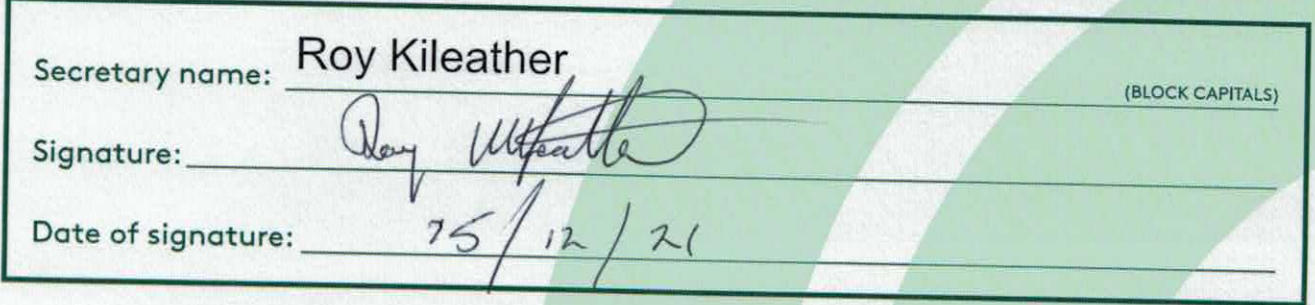 Secretary name: Roy Kileather
(BLOCK CAPITALS)
Signature: Roy
Date of signature: 25/12/21